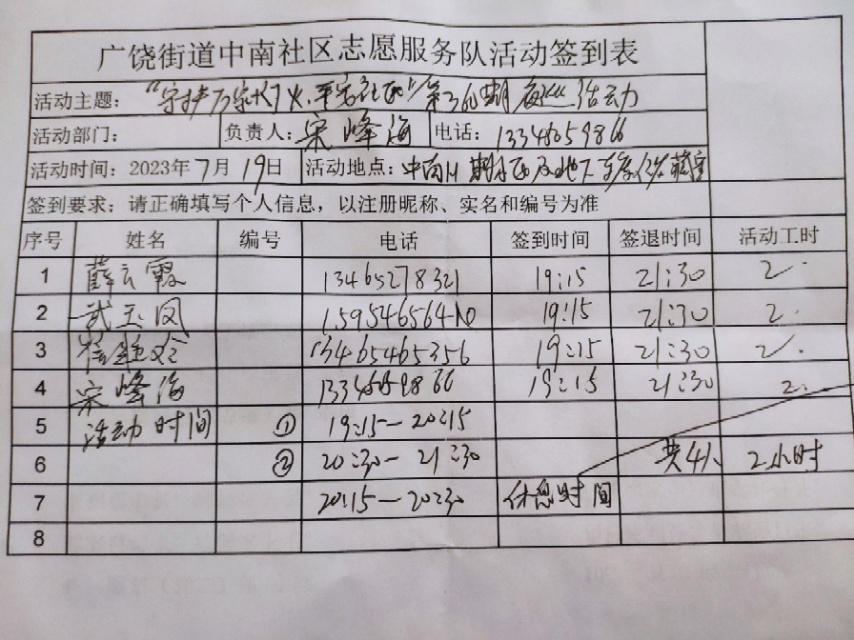 广饶街道中南社区志愿服务队活动签到表
活动主题：“守护万家灯火，平安社区”第36期夜巡活动
活动部门： 负责人：宋峰海 电话：13346059866
活动时间：2023年7月19日 活动地点：中南 期社区及地下车库
签到要求：请正确填写个人信息，以注册昵称、实名和编号为准
序号 姓名 编号 电话 签到时间 签退时间 活动工时
1 薛云霞 13465278321 19:15 21:30 2.
2 武玉凤 19:15 21:30 2.
3 13465465356 19:15 21:30 2.
4 宋峰海 19:15 21:30 2.
5 活动时间 ① 19:15—20:15
6 ② 20:30—21:30 共4人 2小时
7 20:15—20:30 休息时间
8